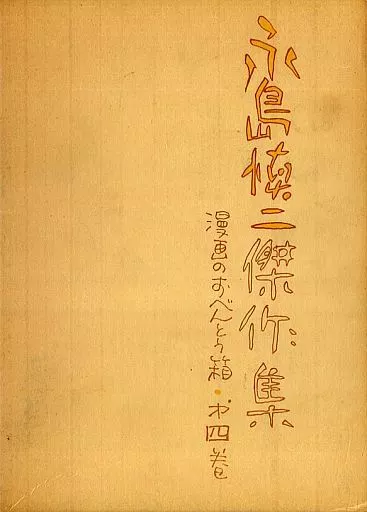 永島慎二傑作集
漫画のおべんとう箱・第四巻